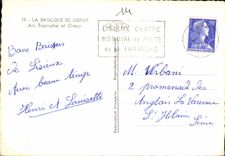 19 - LA BASILIQUE DE LISIEUX
Arc Triomphal et Chœur
LISIEUX CENTRE
MONDIAL DE
Bons Baisers
de Lisieux
Avec beau temps
Henri et
M. Urbani
2 promenade des
Anglais La Varenne
St Hilaire
Seine